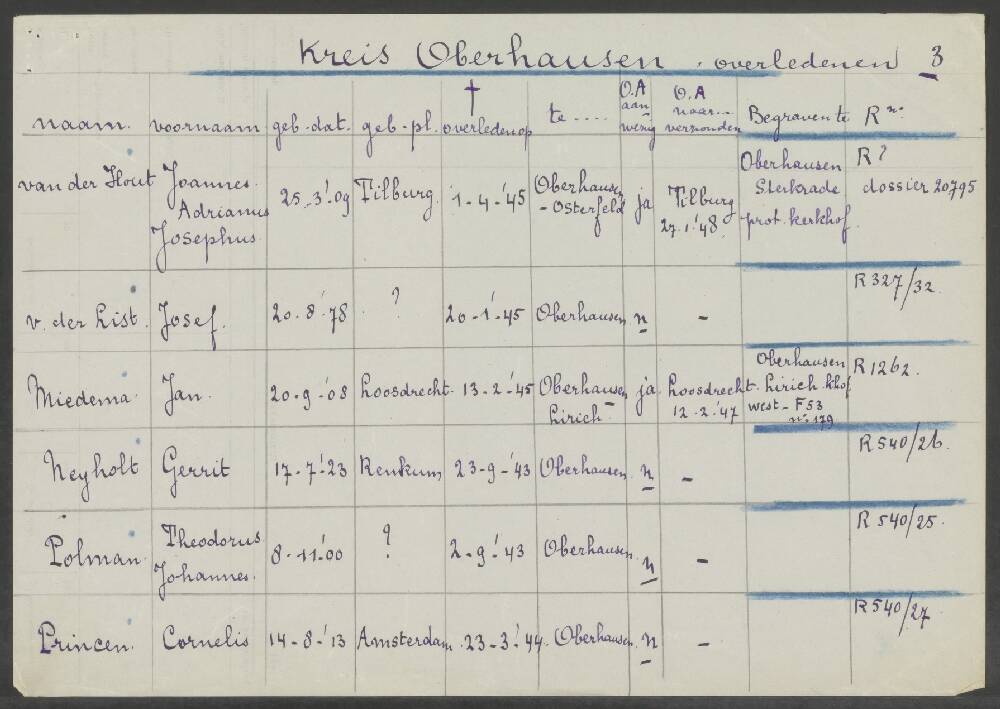 Kreis Oberhausen . overledenen 3
naam. voornaam geb-dat. geb-pl. † overleden op te .... O.A aan wezig O.A naar... verzonden Begraven te R nr.
van der Hout Joannes Adrianus Josephus 25-3-'09 Tilburg 1-4-'45 Oberhausen - Osterfeld ja Tilburg 27.1.'48. Oberhausen Sterkrade prot. kerkhof R? dossier 20795
v. der List. Josef. 20-8-'78 ? 20-1-'45 Oberhausen n - R327/32.
Miedema Jan. 20-9-'08 Loosdrecht 13-2-'45 Oberhausen Lirich. ja Loosdrecht. 12.2.'47 Oberhausen Lirich.khof west-F53 nr 179 R1262.
Neyholt Gerrit 17-7-'23 Renkum 23-9-'43 Oberhausen. n - R540/26.
Polman. Theodorus Johannes. 8-11-'00 ? 2-9-'43 Oberhausen. n - R540/25.
Princen. Cornelis 14-8-'13 Amsterdam. 23-3-'44. Oberhausen. n - R540/27